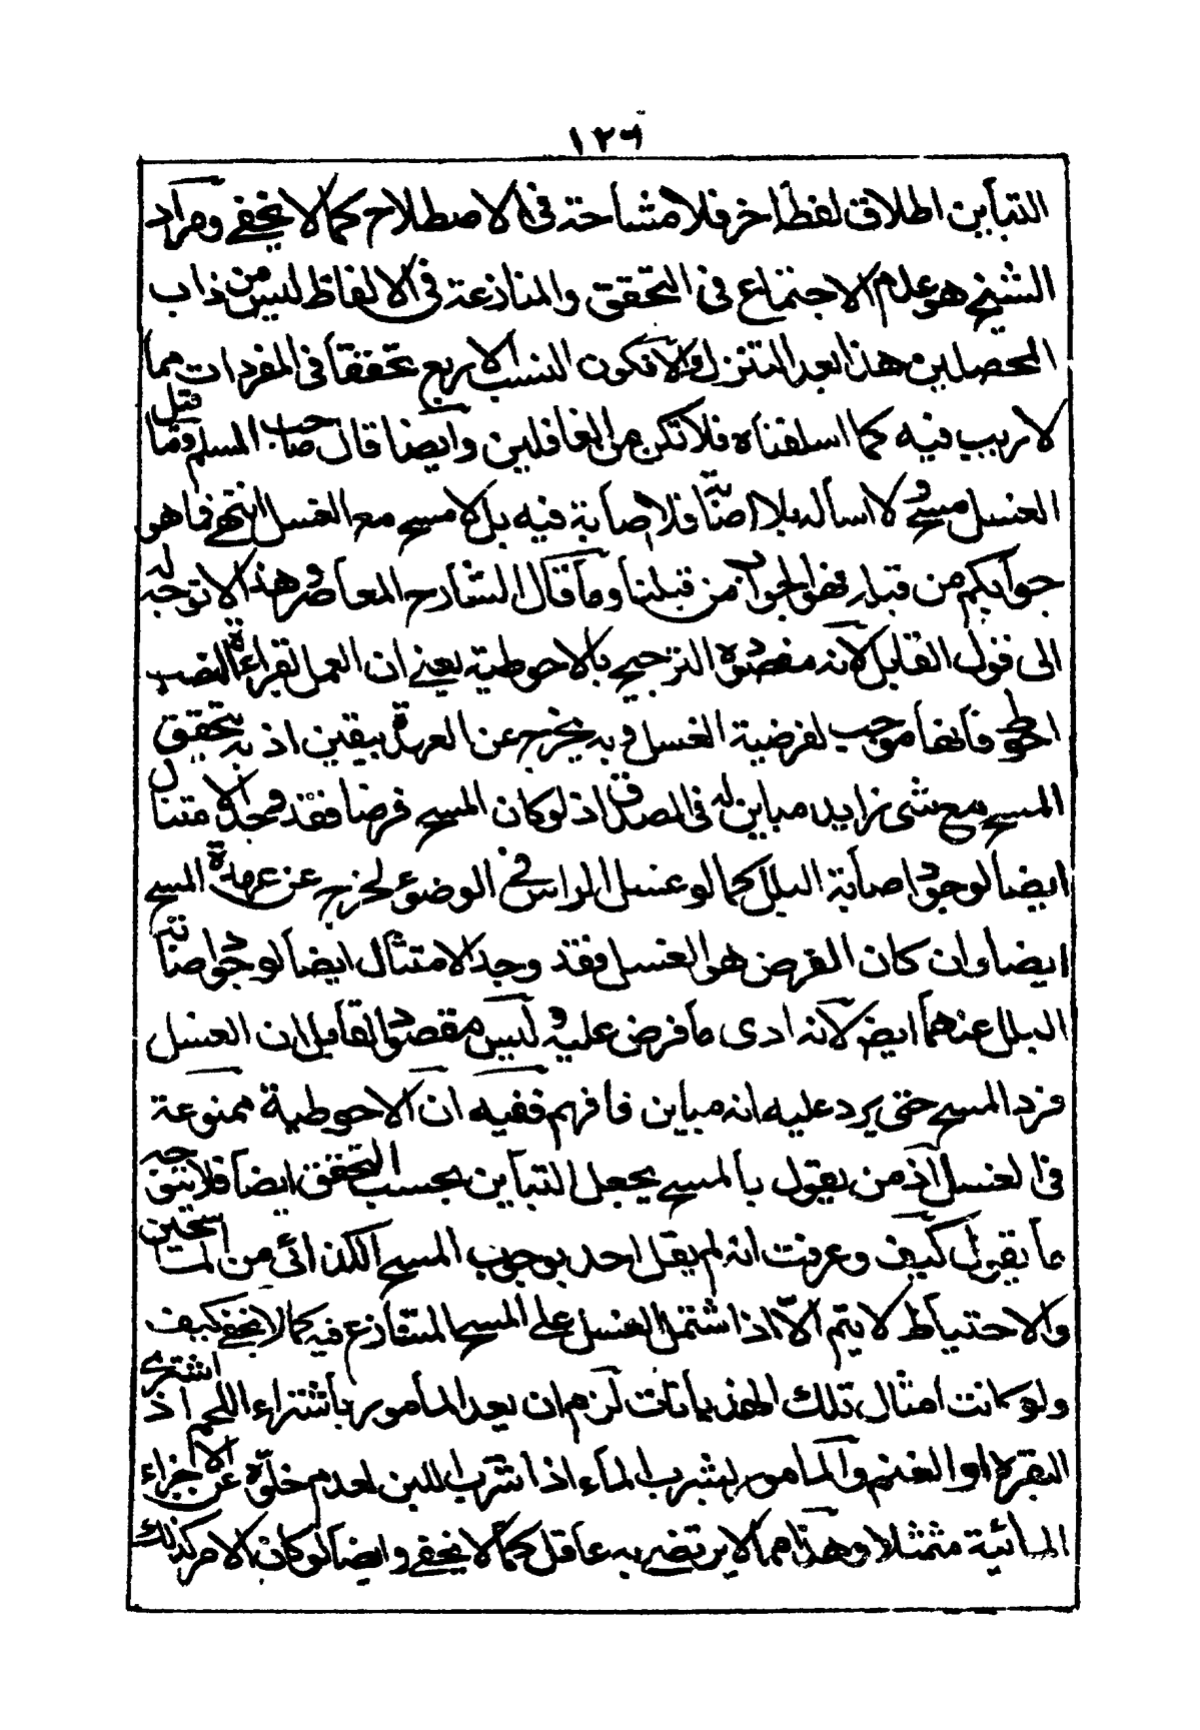 ١٢٦
التباين اطلاق لفظ اخر فلا مشاحة فى الاصطلاح كما لا يخفى ومراد
الشيخ هو عدم الاجتماع فى التحقق والمنازعة فى الالفاظ ليس من داب
المحصلين هذا بعد التنزل والا فكون النسب الاربع تحققا فى المفردات مما
لا ريب فيه كما اسلفناه فلا تكن من الغافلين وايضا قال صاحب المسلم وما قيل
الغسل مسح لا اسالة بلا اصابة فلا اصابة فيه بل لا مسح مع الغسل انتهى فما هو
جوابكم من قبله فهو الجواب من قبلنا وما قال الشارح المعاصر هذا لا توجه له
الى قول القايل لانه مقصوده الترجيح بالاحوطية يعنى ان العمل بقراءة النصب
احوط فانها موجب لفرضية الغسل وبه يخرج عن العهدة بيقين اذ به يتحقق
المسح مع شى زايد مباين له فى الصدق اذ لو كان المسح فرضا فقد وجد الامتثال
ايضا لوجود اصابة البلل كما لو غسل الراس فى الوضوء لخرج عن عهدة المسح
ايضا وان كان الفرض هو الغسل فقد وجد الامتثال ايضا لوجود اصابة
البلل عندهما ايض لانه ادى ما فرض عليه وليس مقصود القايل ان الغسل
فرد المسح حتى يرد عليه انه مباين فافهم ففيه ان الاحوطية ممنوعة
فى الغسل اذ من يقول بالمسح يجعل التباين بحسب التحقق ايضا فلا يتوجه
ما يقول كيف وعرفت انه لم يقل احد بوجوب المسح الكذائى من الماسحين
والاحتياط لا يتم الا اذا اشتمل الغسل على المسح المتنازع فيه كما لا يخفى كيف
ولو كانت امثال تلك الهذيانات لزم ان يعد المامور باشتراء اللحم اذا اشترى
البقرة او الغنم والمامور بشرب الماء اذا شرب اللبن لعدم خلوه عن الاجزاء
المائية متمثلا وهذا مما لا يرتضى به عاقل كما لا يخفى وايضا لو كان الامر كذلك